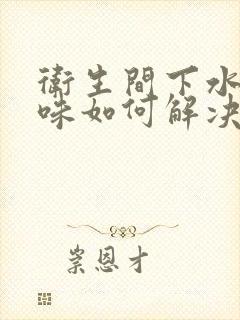 衛生間下水
味如何解決
崇恩才